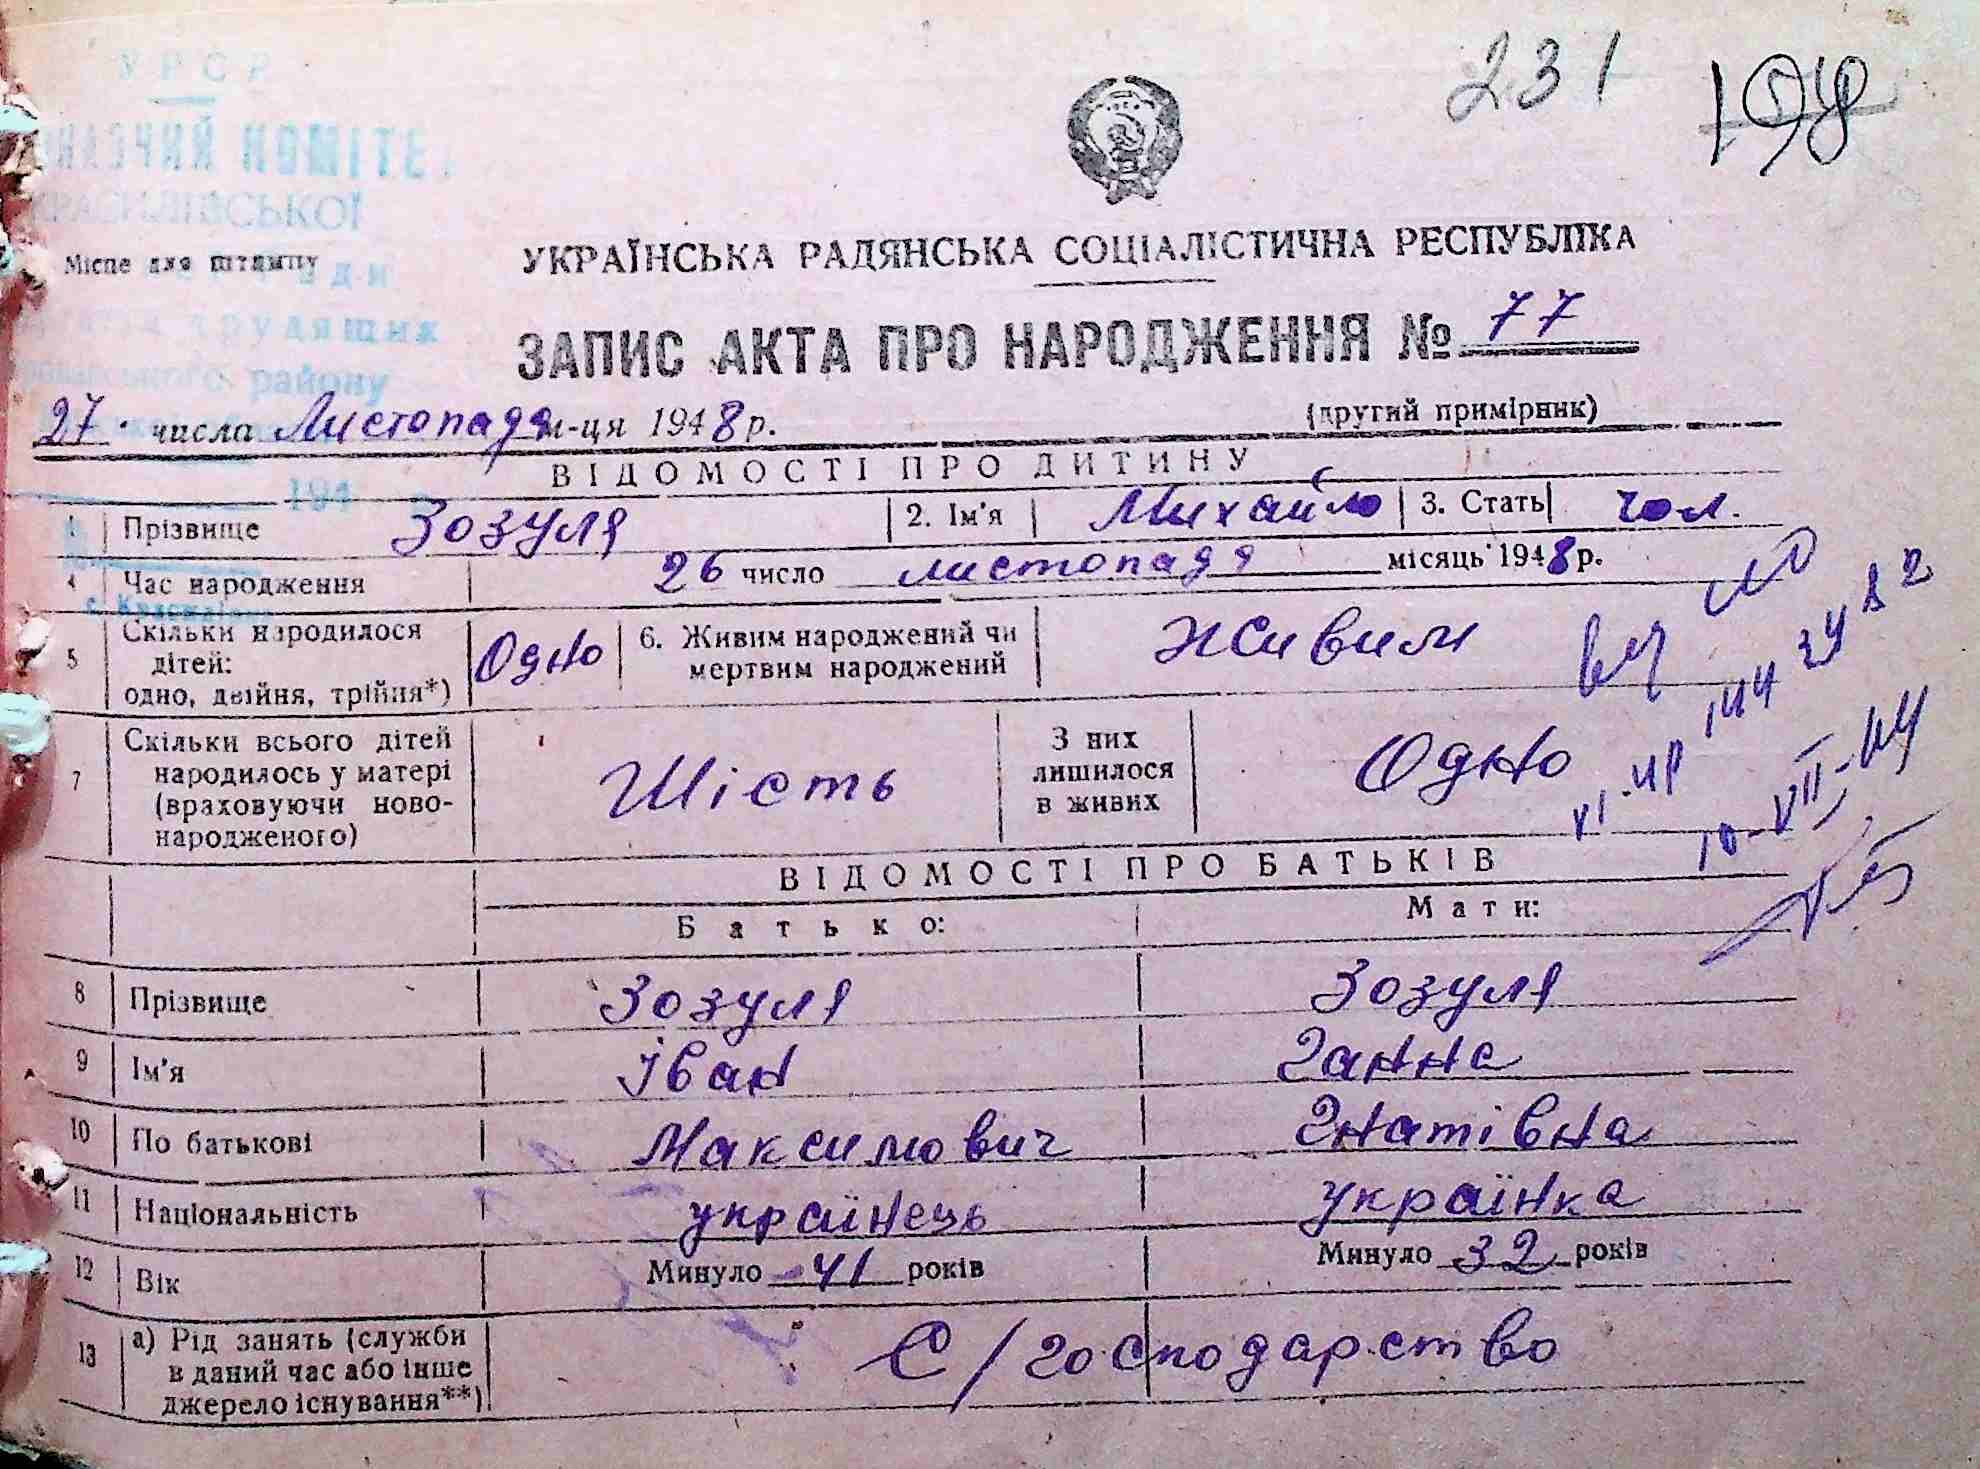 УРСР
КОМІТЕ
231
198
КРАСИЛІВСЬКОЇ
Місце для штампу
УКРАЇНСЬКА РАДЯНСЬКА СОЦІАЛІСТИЧНА РЕСПУБЛІКА
трудящих
ЗАПИС АКТА ПРО НАРОДЖЕННЯ № 77
району
27 числа Листопада м-ця 1948 р. (другий примірник)
ВІДОМОСТІ ПРО ДИТИНУ
194
1 Прізвище Зозуля 2. Ім'я Михайло 3. Стать чол.
4 Час народження 26 число листопада місяць 1948 р.
5 Скільки народилося дітей: одно, двійня, трійня*) Одно 6. Живим народжений чи мертвим народжений Живим
7 Скільки всього дітей народилось у матері (враховуючи ново-народженого) Шість З них лишилося в живих Одно
10-VII-64
ВІДОМОСТІ ПРО БАТЬКІВ
Батько: Мати:
8 Прізвище Зозуля Зозуля
9 Ім'я Іван Ганна
10 По батькові Максимович Гнатівна
11 Національність українець українка
12 Вік Минуло 41 років Минуло 32 років
13 а) Рід занять (служби в даний час або інше джерело існування**) С/господарство